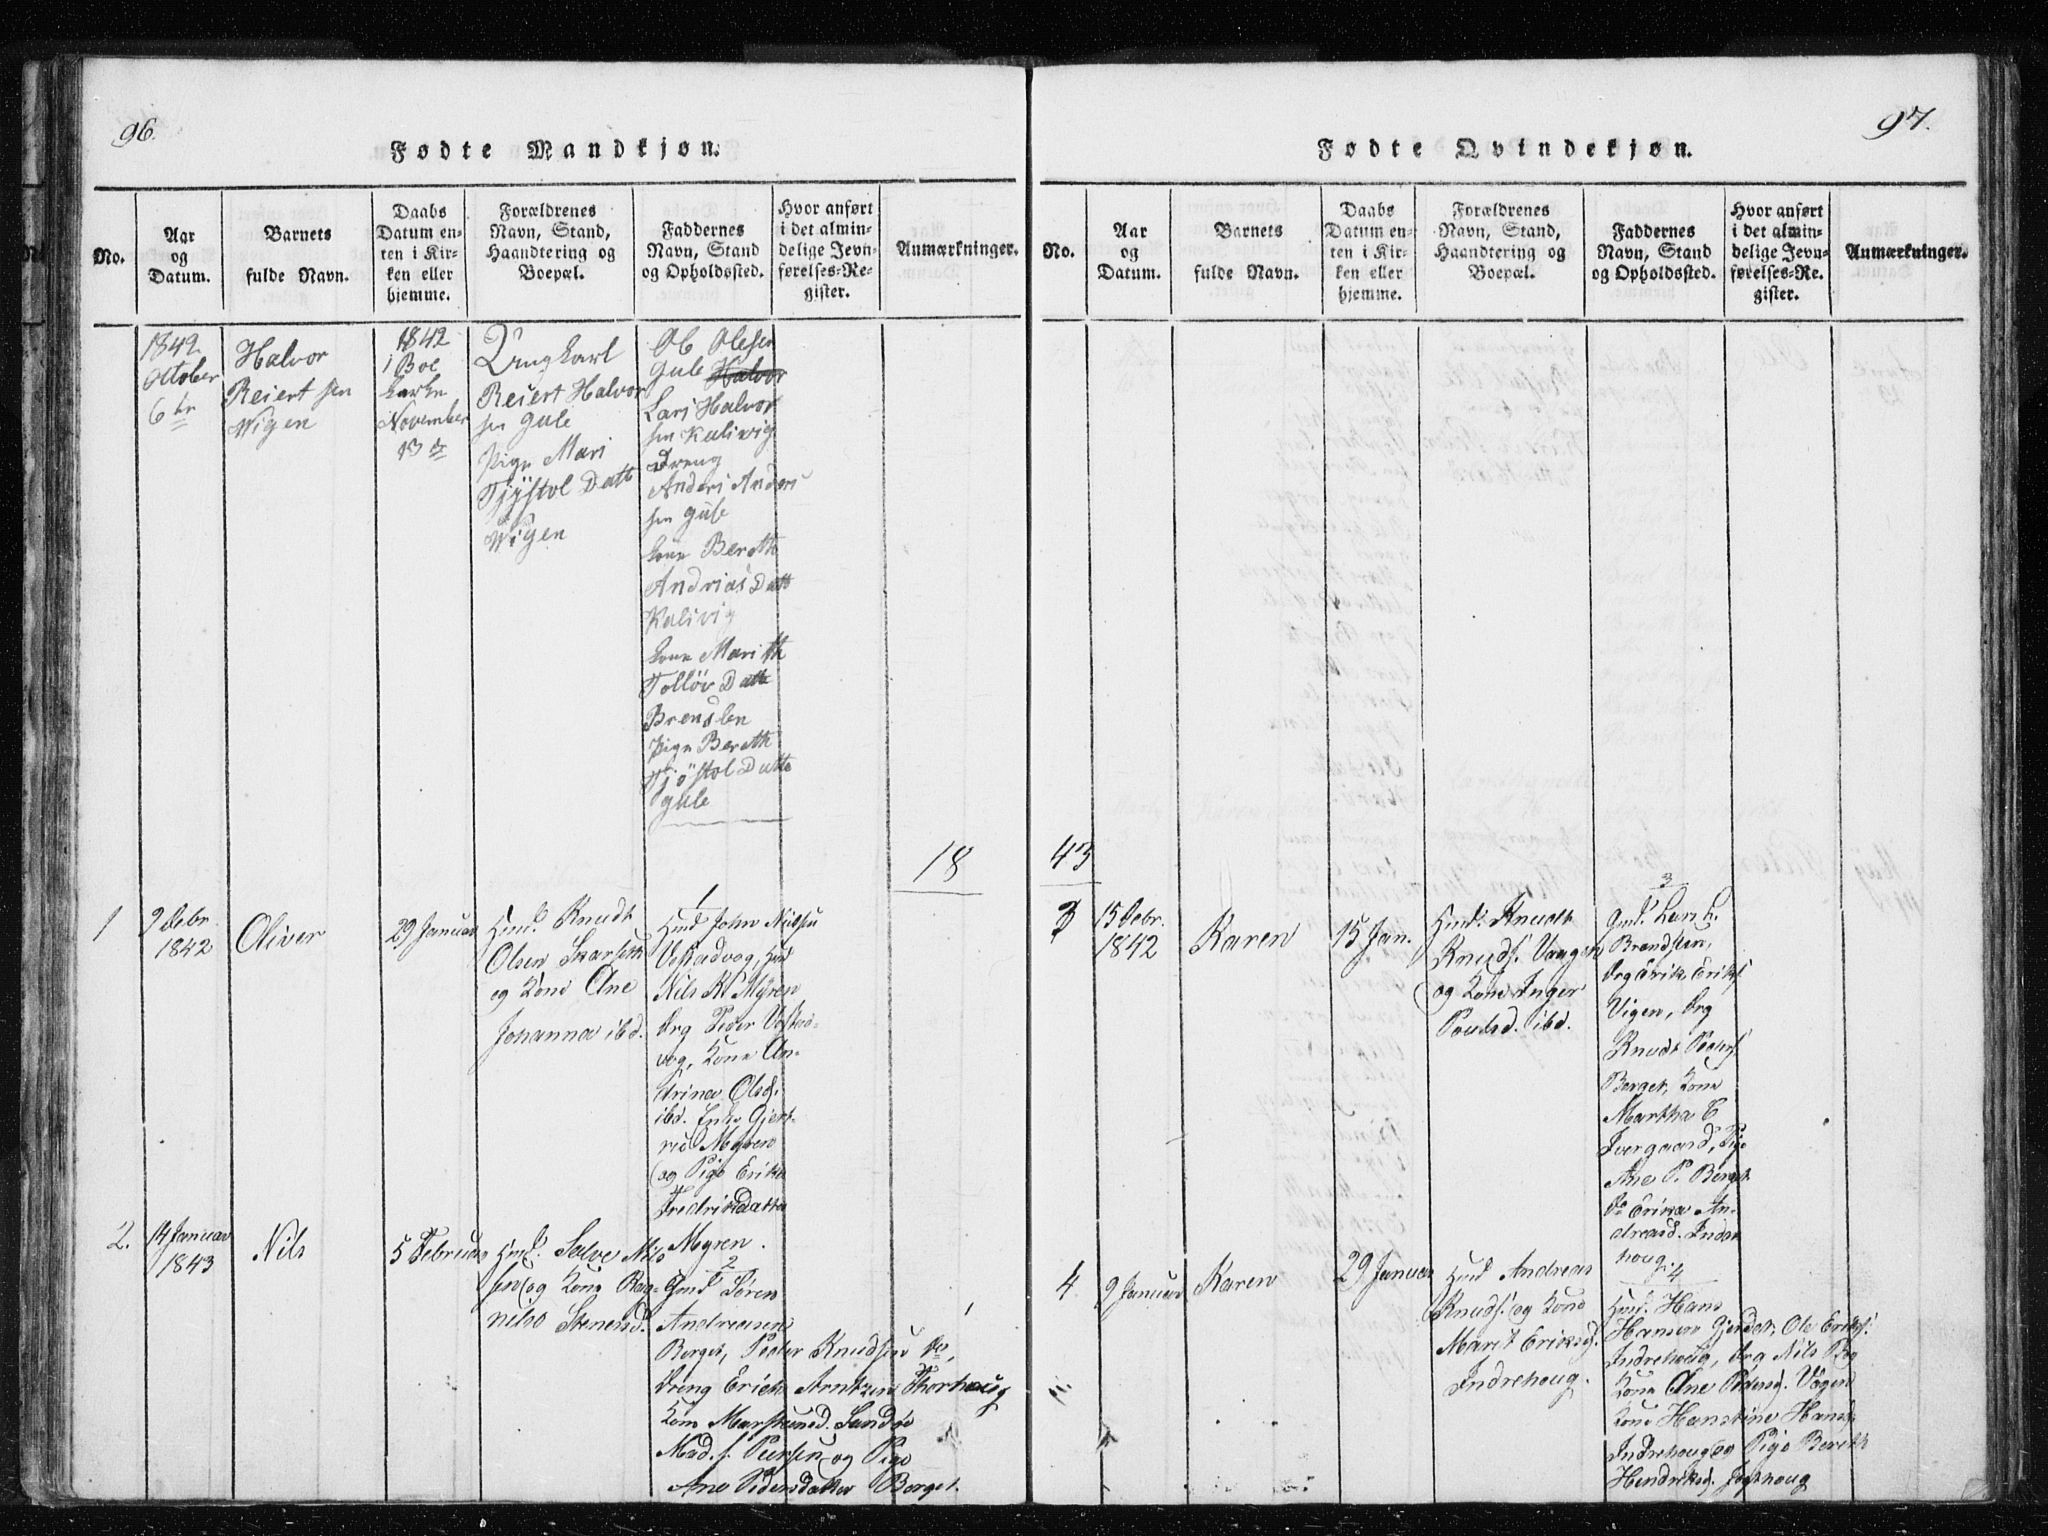 96.
Fødte Mandkjøn.
No.
Aar
og
Datum.
Barnets
fulde Navn.
Daabs
Datum en-
ten i Kir-
ken eller
hjemme.
Forældrenes
Navn, Stand,
Haandtering og
Boepæl.
Faddernes
Navn, Stand
og Opholdssted.
Hvor anført
i det almin-
delige Jevn-
førelses-Re-
gister.
Anmærkninger.
1842
October
6
Halvor
Reiert sen
Wigen
1842
i Boe
November
13
Ungkarl
Reiert Halvor
sen gule
Pige Mari
Tjøstol Datt
Wigen
Ole Olesen
gule Halvor
Lars Halvor
sen Kulivig
Dreng
Anders Anders
sen gule
Kone Berath
Andrias Datt
Kulivig
Kone Marith
Tolløv Datt
Brenslen
Pige Berath
Tjøstol Datte
gule
18
1
9 Debr
1842
Oliver
29 Januar
Hmd. Knudt
Olsen Skarseth
og Kone Ane
Johanna ibd.
1
Hmd John Nilsen
Vestadvog, Hmd
Nils K. Myren
Drg Peder Vestad-
vog, Kone An-
drina Olsd.
ibd. Enke Gjert-
rud Myren
og Pige Erika
Fredriksdatter
Myren.
2.
14 Januar
1843
Nils
5 Februar
Hmd. Salve Nils
sen og Kone Rag-
nild Stenersd.
2
Gmd Søren
Andreasen
Berget, Peder Knudsen Do,
Dreng Erich Arntzen Thorhaug
Kone Marthe Sandøe
Mad. s. Peersen og Pige
Ane Pedersdatter Berget.
97.
Fødte Qvindekjøn.
No.
Aar
og
Datum.
Barnets
fulde Navn.
Daabs
Datum en-
ten i Kir-
ken eller
hjemme.
Forældrenes
Navn, Stand,
Haandtering og
Boepæl.
Faddernes
Navn, Stand
og Opholdssted.
Hvor anført
i det almin-
delige Jevn-
førelses-Re-
gister.
Anmærkninger.
43
3
15 Debr.
1842
Karen
15 Jan.
Hmd. Knudt
Knuds. Vaagen
og Kone Inger
Poulsd. ibd.
3
Gmd. Lars L.
Brandsten,
Drg Erik Eriks.
Vigen, Drg
Knudt Peders.
Berget, Kone
Martha E
Ivergaard, Pige
Ane P. Berget
Do Erika An-
dreasd. Indre
houg.
4.
9 Januar
Karen
29 Januar
Hmd Andreas
Knuds. og Kone
Marit Eriksd.
Indrehoug.
4
Hmd. Hans
Hansen Gjerdet, Ole Eriks.
Indrehoug, Drg Nils Bog
Kone Ane Pedersd. Vågen
Kone Hanstine Hansd.
Indrehoug og Pige Berith
Hendriksd. Fogthoug